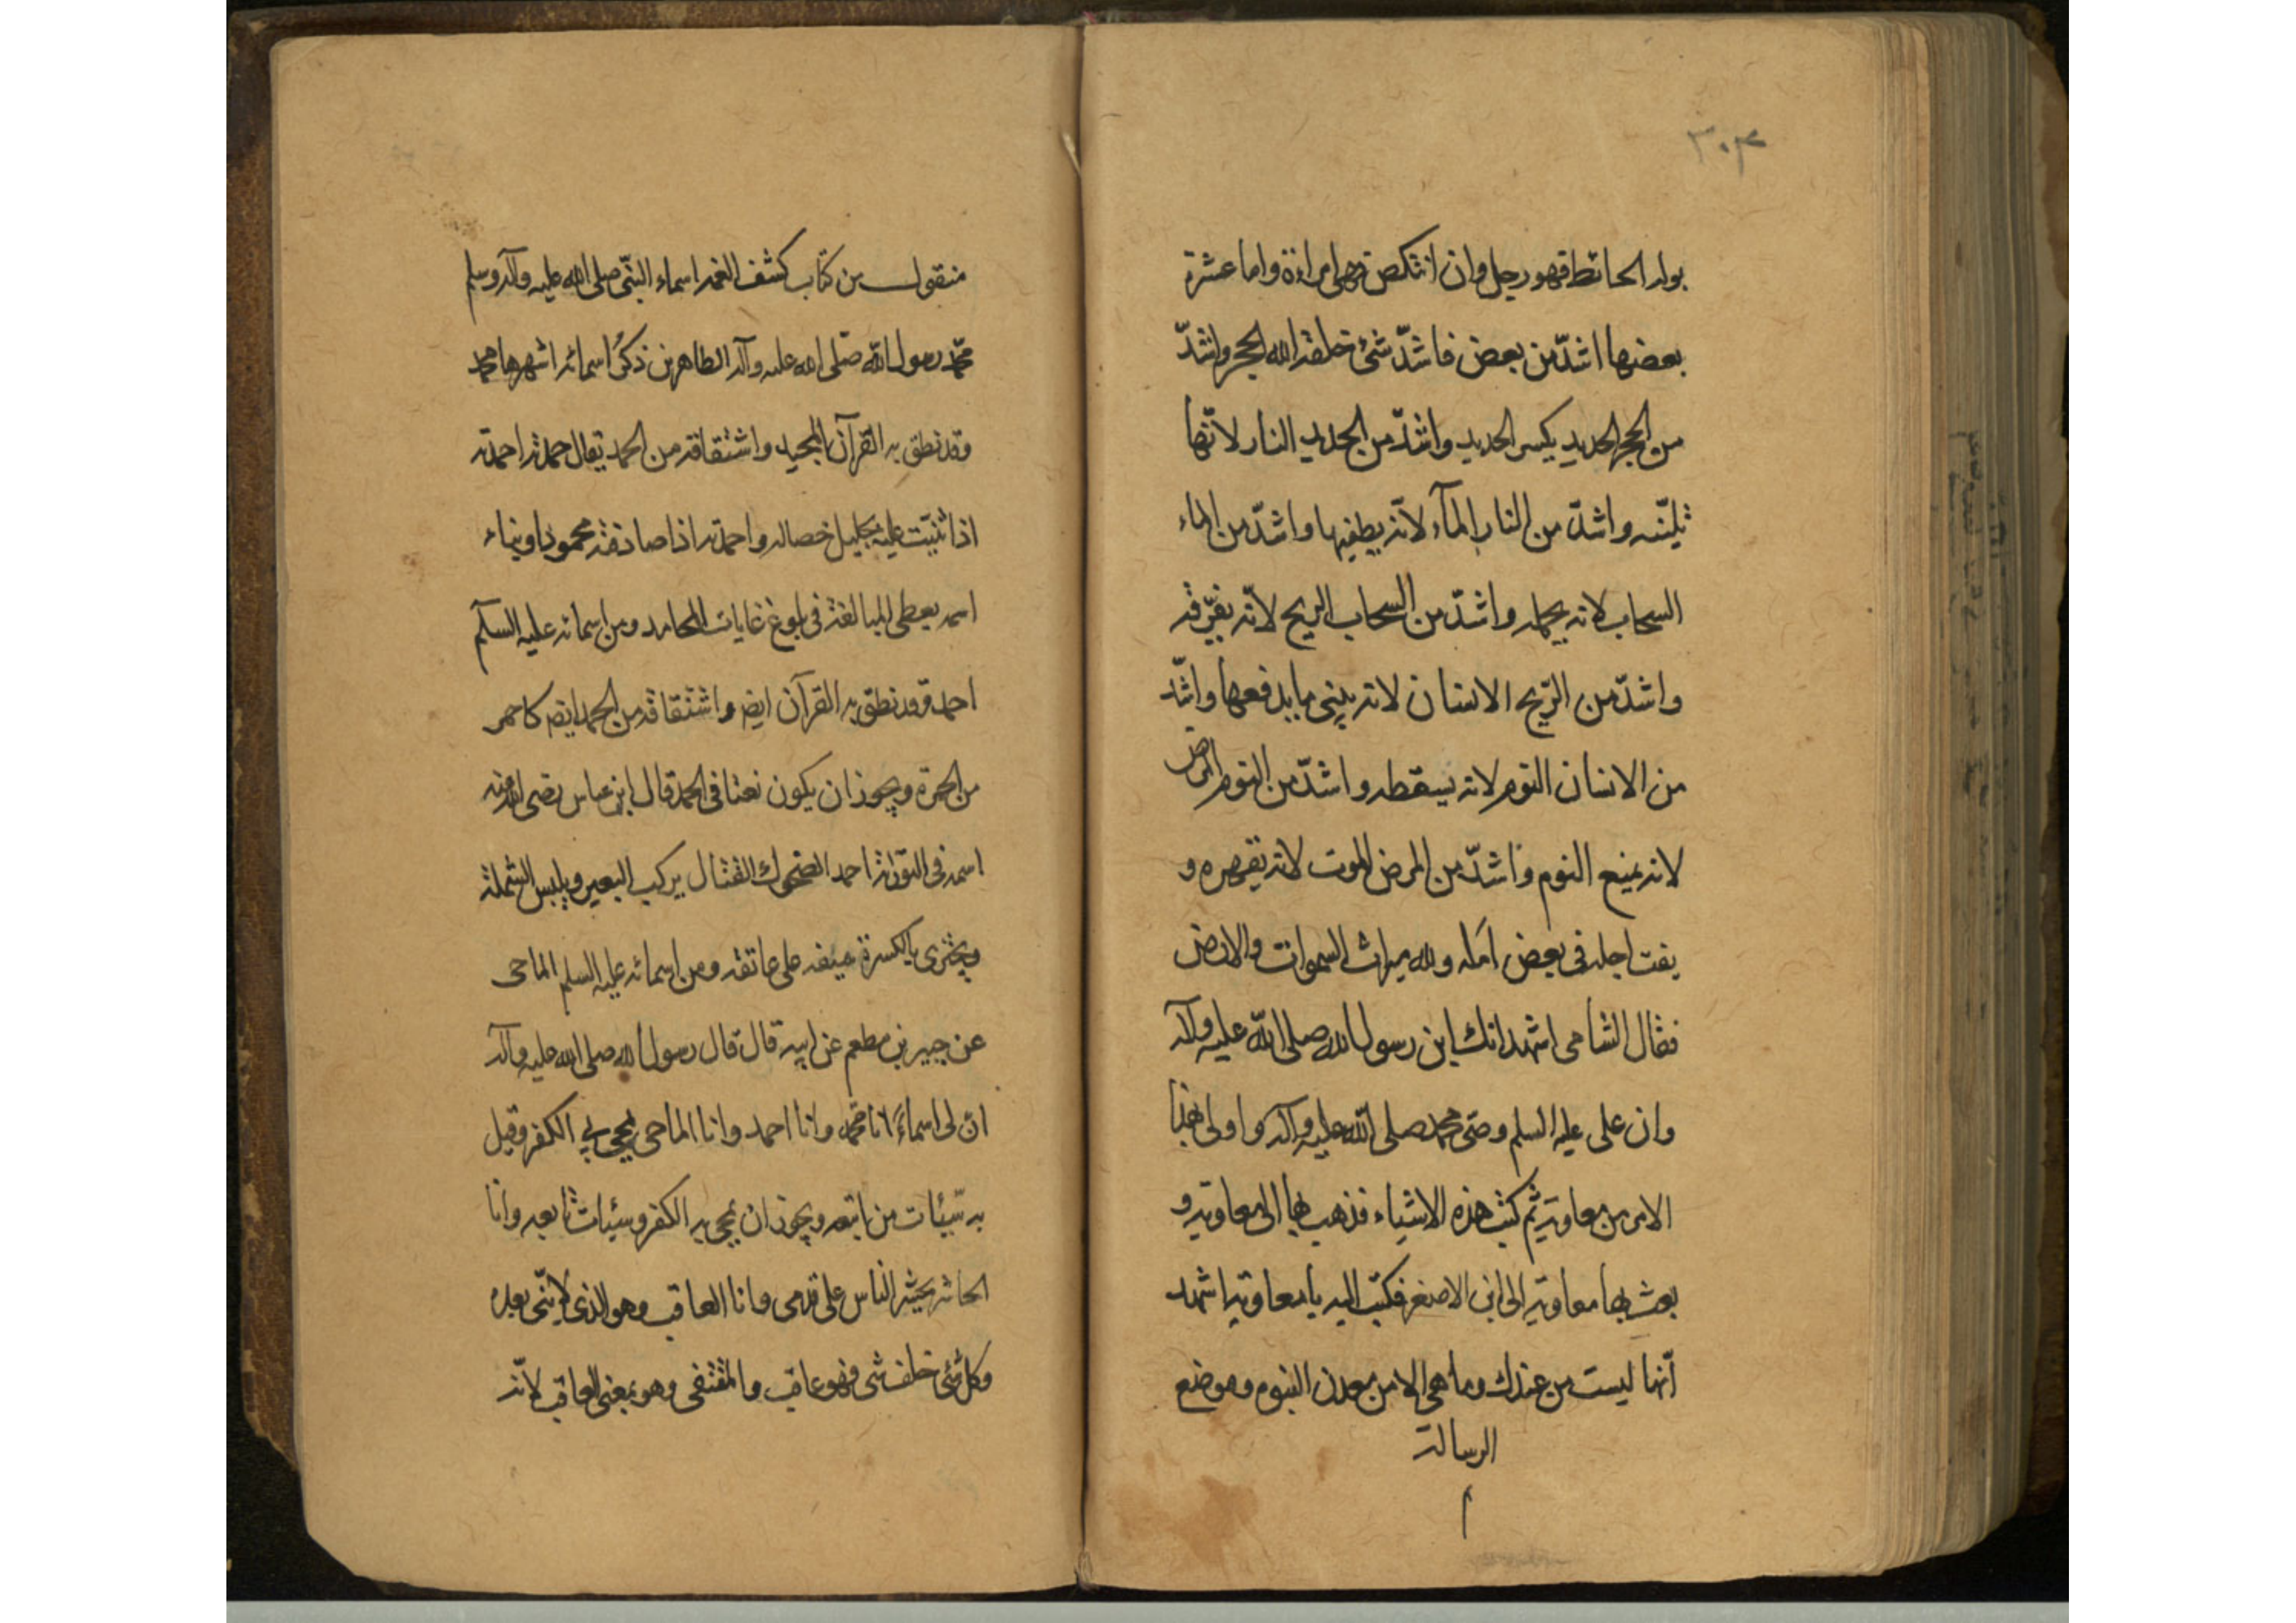 ٣٠٣
بوله الحائط فهو رجل وان انتكص فهى امراءة واما عشرة
بعضها اشدّ من بعض فاشدّ شئ خلقه الله الحجر واشدّ
من الحجر الحديد يكسر الحديد واشدّ من الحديد النار لانّها
تليّنه واشدّ من النار المآء لانّه يطفيها واشدّ من الماء
السحاب لانه يحمله واشدّ من السحاب الريح لانّه يفرّقه
واشدّ من الرّيح الانسان لانه يبنى ما يدفعها واشدّ
من الانسان النوم لانه يسقطه واشدّ من النوم المرض
لانه يمنع النوم واشدّ من المرض الموت لانه يقهره و
يفت اجله فى بعض امله ولله ميراث السموات والارض
فقال الشامى اشهد انك ابن رسول الله صلى الله عليه وآله
وان على عليه السلم وصى محمد صلى الله عليه وآله واولى بهذا
الامر من معاوية ثم كتب هذه الاشياء فذهب بها الى معاوية و
بعث بها معاوية الى ابن الاصفر فكتب اليه يا معاوية اشهد
انّها ليست من عندك وما هى الا من معدن النبوه وموضع
الرسالة
م
منقول من كتاب كشف الغمه اسماء النبّى صلى الله عليه وآله وسلم
محمّد رسول الله صلّى الله عليه وآله الطاهرين ذكر اسمائه اشهرها محمد
وقد نطق به القرآن المجيد واشتقاقه من الحمد يقال حمدته احمدته
اذا ثنيت عليه بجليل خصاله واحمدته اذا صادفته محمودا وبناء
اسمه يعطى المبالغة فى بلوغ غايات المحامد ومن اسمائه عليه السلآم
احمد وقد نطق به القرآن ايضا واشتقاقه من الحمد ايضا كاحمر
من الحمرة ويجوز ان يكون نعتا فى الحمد قال ابن عباس رضى الله عنه
اسمه فى التوراة احمد الضحوك القتال يركب البعير ويلبس الشملة
ويجتزى بالكسرة سيفه على عاتقه ومن اسمائه عليه السلم الماحى
عن جبير بن مطعم عن ابيه قال قال رسول الله صلى الله عليه وآله
ان لى اسماءً انا محمّد وانا احمد وانا الماحى يمحى بي الكفر وقيل
به سيّئات من اتبعه ويجوز ان يمحى به الكفر وسيئات تابعه وانا
الحاشر يحشر الناس على قدمى وانا العاقب وهو الذى لا نبّى بعده
وكل شئ خلف شى فهو عاقب والمقتفى وهو بمعنى العاقب لانّه